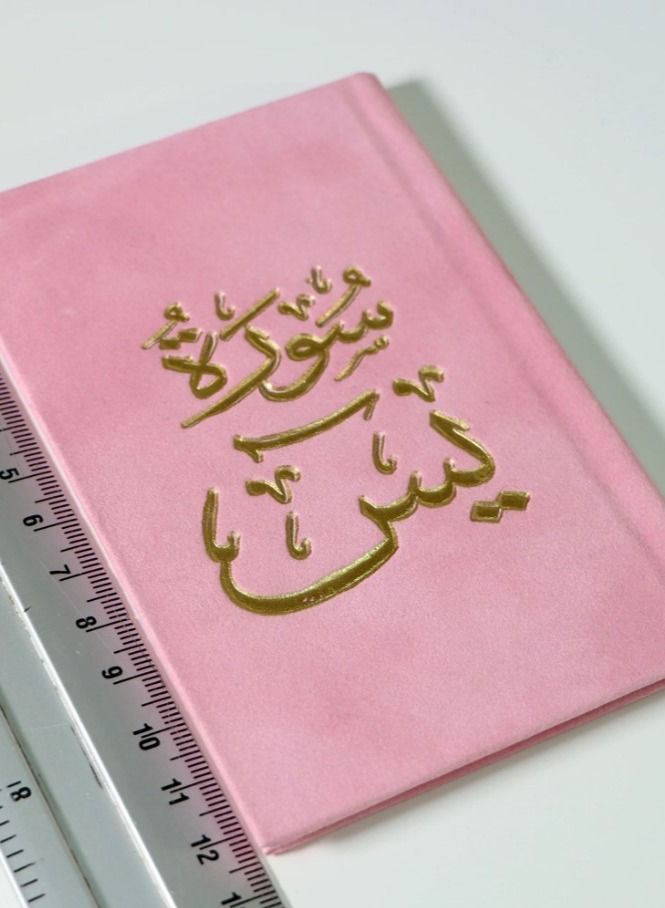 سُورَةُ
يس
5
6
7
8
9
10
11
12
18